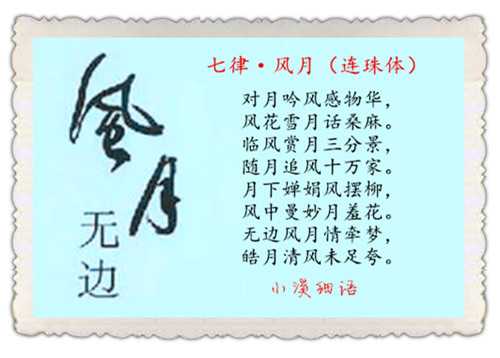 風月
无边
七律·风月（连珠体）
对月吟风感物华，
风花雪月话桑麻。
临风赏月三分景，
随月追风十万家。
月下婵娟风摆柳，
风中曼妙月羞花。
无边风月情牵梦，
皓月清风未足夸。
小溪细语